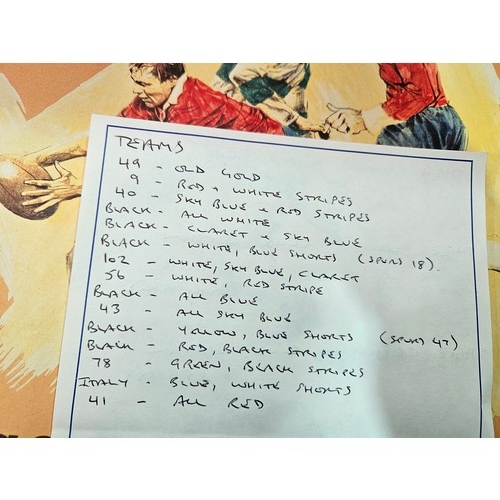 TEAMS
49 - OLD GOLD
9 - RED + WHITE STRIPES
40 - SKY BLUE + RED STRIPES
BLACK - ALL WHITE
BLACK - CLARET + SKY BLUE
BLACK - WHITE, BLUE SHORTS (SPURS 18)
102 - WHITE, SKY BLUE, CLARET
56 - WHITE, RED STRIPE
BLACK - ALL BLUE
43 - ALL SKY BLUE
BLACK - YELLOW, BLUE SHORTS (SPURS 47)
BLACK - RED, BLACK STRIPES
78 - GREEN, BLACK STRIPES
ITALY - BLUE, WHITE SHORTS
41 - ALL RED